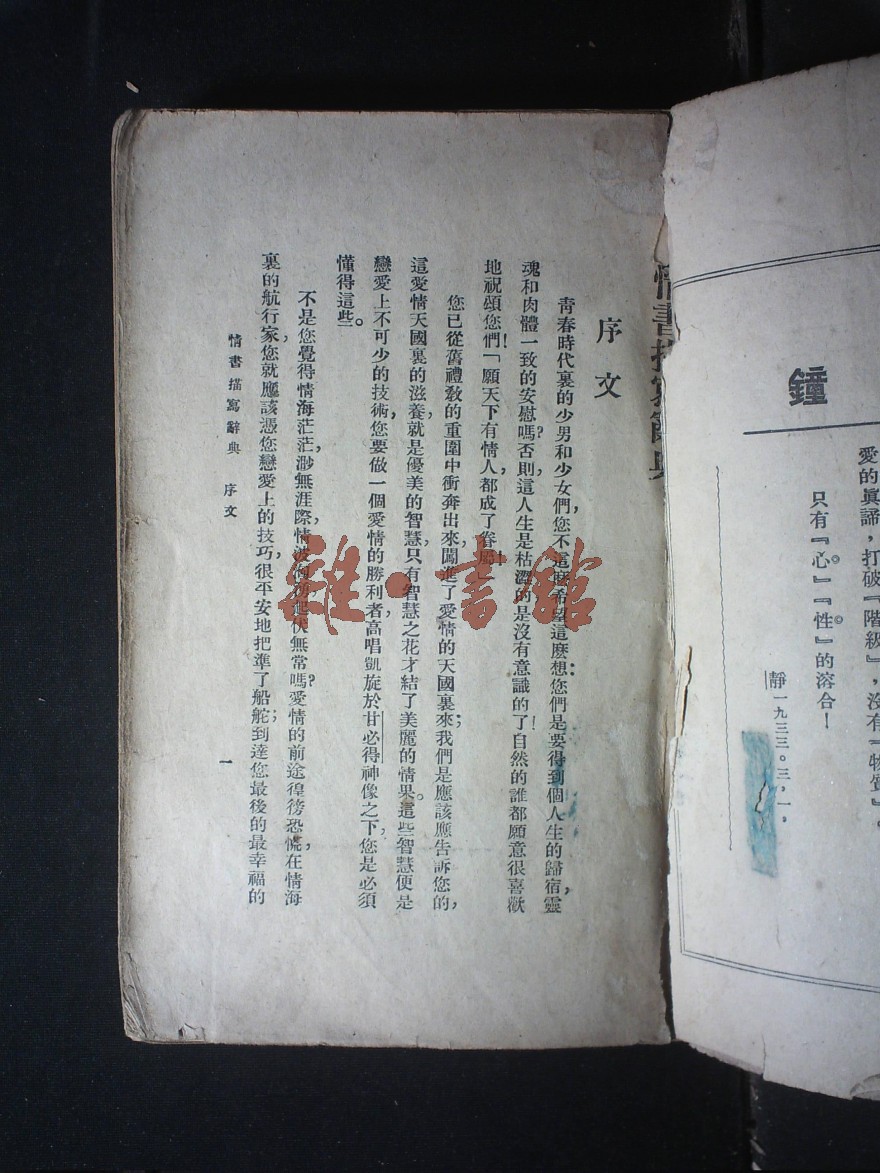 鐘
愛的眞諦，打破『階級』，沒有『物質』。
只有『心』『性』的溶合！
靜一九三三。三，一，
情書描寫辭典
序文
靑春時代裏的少男和少女們，您不這麻希望這麽想：您們是要得到個人生的歸宿，靈
魂和肉體一致的安慰嗎？否則，這人生是枯澀的是沒有意識的了！自然的誰都願意很喜歡
地祝頌您們！「願天下有情人，都成了眷屬！」
您已從舊禮敎的重圍中衝奔出來，闖進了愛情的天國裏來；我們是應該應告訴您的，
這愛情天國裏的滋養，就是優美的智慧，只有智慧之花才結了美麗的情果。這些智慧便是
戀愛上不可少的技術，您要做一個愛情的勝利者，高唱凱旋於甘必得神像之下，您是必須
懂得這些。
不是您覺得情海茫茫，渺無涯際，情波洶湧起伏無常嗎？愛情的前途徨徬恐慌，在情海
裏的航行家，您就應該憑您戀愛上的技巧，很平安地把準了船舵；到達您最後的最幸福的
情書描寫辭典 序文
一
雜·書館